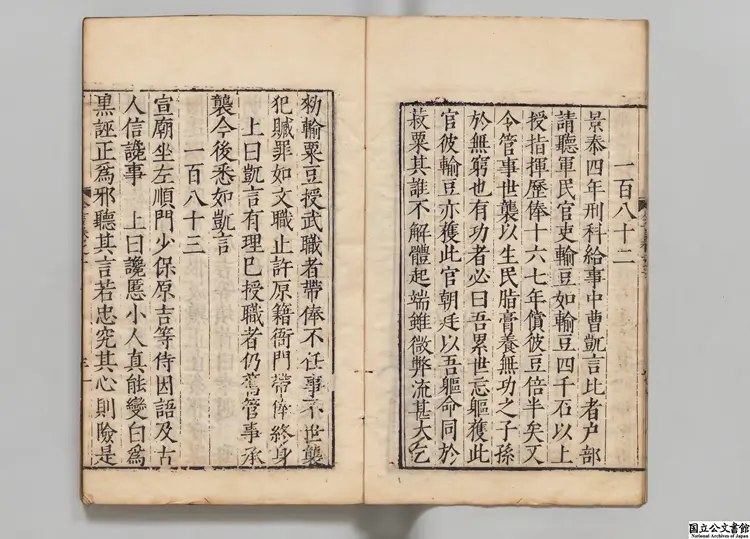 一百八十二
景泰四年刑科給事中曹凱言比者户部
請聽軍民官吏輸豆如輸豆四千石以上
授指揮歷俸十六七年償彼豆倍半矣又
令管事世襲以生民脂膏養無功之子孫
於無窮也有功者必曰吾累世忘軀獲此
官彼輸豆亦獲此官朝廷以吾軀命同於
菽粟其誰不解體起端雖微弊流甚大乞
勑輸粟豆授武職者帶俸不任事不世襲
犯贓罪如文職止許原籍衙門帶俸終身
上曰凱言有理已授職者仍舊管事承
襲今後悉如凱言
一百八十三
宣廟坐左順門少保原吉等侍因語及古
人信讒事 上曰讒慝小人真能變白爲
黑誣正爲邪聽其言若忠究其心則險是
国立公文書館
National Archives of Japan